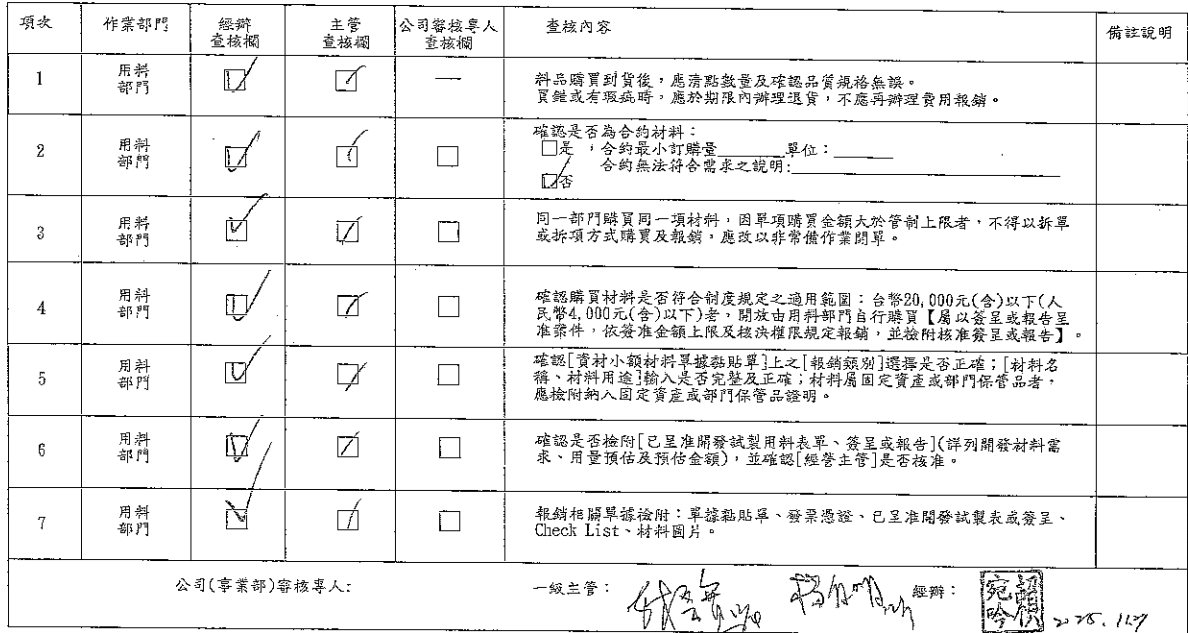 項次 作業部門 經辦查核欄 主管查核欄 公司審核專人查核欄 查核內容 備註說明
1 用料部門 ☑ ☑ —
料品購買到貨後,應清點數量及確認品質規格無誤。
買錯或有瑕疵時,應於期限內辦理退貨,不應再辦理費用報銷。
2 用料部門 ☑ ☑ □
確認是否為合約材料:
□是 ,合約最小訂購量________單位:______
合約無法符合需求之說明:__________________________
☑否
3 用料部門 ☑ ☑ □
同一部門購買同一項材料,因單項購買金額大於管制上限者,不得以拆單
或拆項方式購買及報銷,應改以非常備作業開單。
4 用料部門 ☑ ☑ □
確認購買材料是否符合制度規定之適用範圍:台幣20,000元(含)以下(人
民幣4,000元(含)以下)者,開放由用料部門自行購買【屬以簽呈或報告呈
准案件,依簽准金額上限及核決權限規定報銷,並檢附核准簽呈或報告】。
5 用料部門 ☑ ☑ □
確認[資材小額材料單據黏貼單]上之[報銷類別]選擇是否正確;[材料名
稱、材料用途]輸入是否完整及正確;材料屬固定資產或部門保管品者,
應檢附納入固定資產或部門保管品證明。
6 用料部門 ☑ ☑ □
確認是否檢附[已呈准開發試製用料表單、簽呈或報告](詳列開發材料需
求、用量預估及預估金額),並確認[經營主管]是否核准。
7 用料部門 ☑ ☑ □
報銷相關單據檢附:單據黏貼單、發票憑證、已呈准開發試製表或簽呈、
Check List、材料圖片。
公司(事業部)審核專人: 一級主管: 經辦: